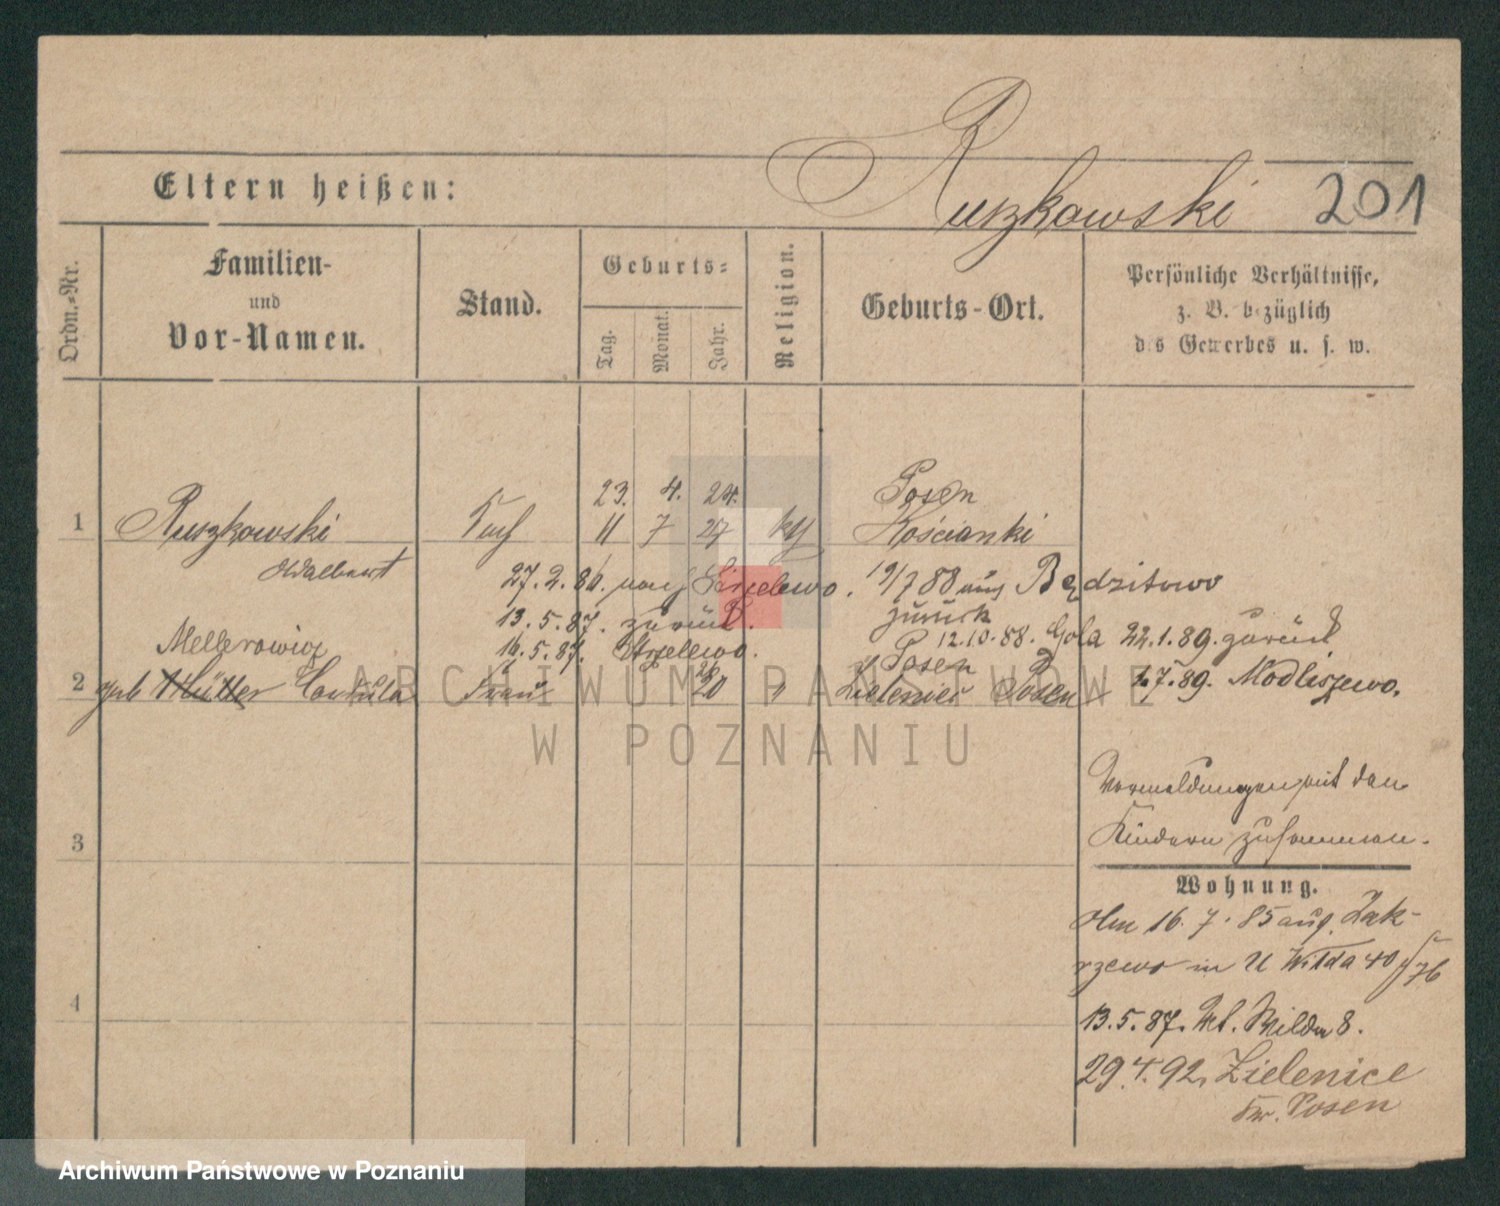 Ruszkowski 201
Eltern heißen:
Ordn.-Nr.
Familien-
und
Vor-Namen.
Stand.
Geburts-
Tag.
Monat.
Jahr.
Religion.
Geburts-Ort.
Persönliche Verhältnisse,
z. B. bezüglich
des Gewerbes u. s. w.
23. 4. 24. Posen
1 Ruszkowski 11 7 27 kth Kościanki
Adalbert
27.2.86. nach Strzelewo. 19/7 88 aus Będzitowo
zurück
13.5.87. zurück. 12.10.88. Gola 22.1.89. zurück
16.5.87. Strzelewo. Posen
Mellerowicz
2 geb Müller Frau 20 " Zieleniec Posen 1.7.89. Modliszewo.
ARCHIWUM PAŃSTWOWE
W POZNANIU
Vormeldungen mit den
Kindern zusammen.
3
Wohnung.
Am 16.7.85 aus Zak-
rzewo in U Wilda 40
4
13.5.87. Wilda 8.
29.4.92. Zielenice
Kr. Posen
Archiwum Państwowe w Poznaniu